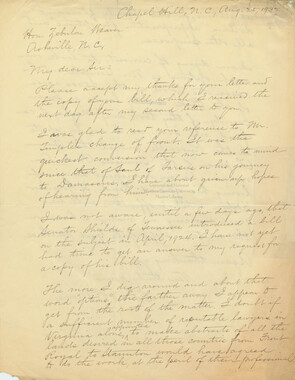 Chapel Hill, N.C. Aug. 25, 1925
Hon. Zebulon Weaver
Asheville N.C.
My dear Sir:
Please accept my thanks for your letter and
the copy of your bill, which I received the
next day after my second letter to you.
I was glad to read your reference to Mr.
Temple's change of front. It was the
quickest conversion that now comes to mind
since that of Saul of Tarsus on his journey
to Damascus. I had about given up hopes
of hearing from him.
I was not aware, until a few days ago that
Senator Shields of Tennessee introduced a bill
on the subject in April, 1924. I have not yet
had time to get an answer to my request for
a copy of his bill.
The more I dig around and about that
word option, the farther away I appear to
get from the root of the matter. I doubt if
a sufficient number of reputable lawyers in
Virginia alone, to make abstracts of all the
lands desired in all those counties from Front
Royal to Staunton would have agreed
to do the work at the peril of their professional